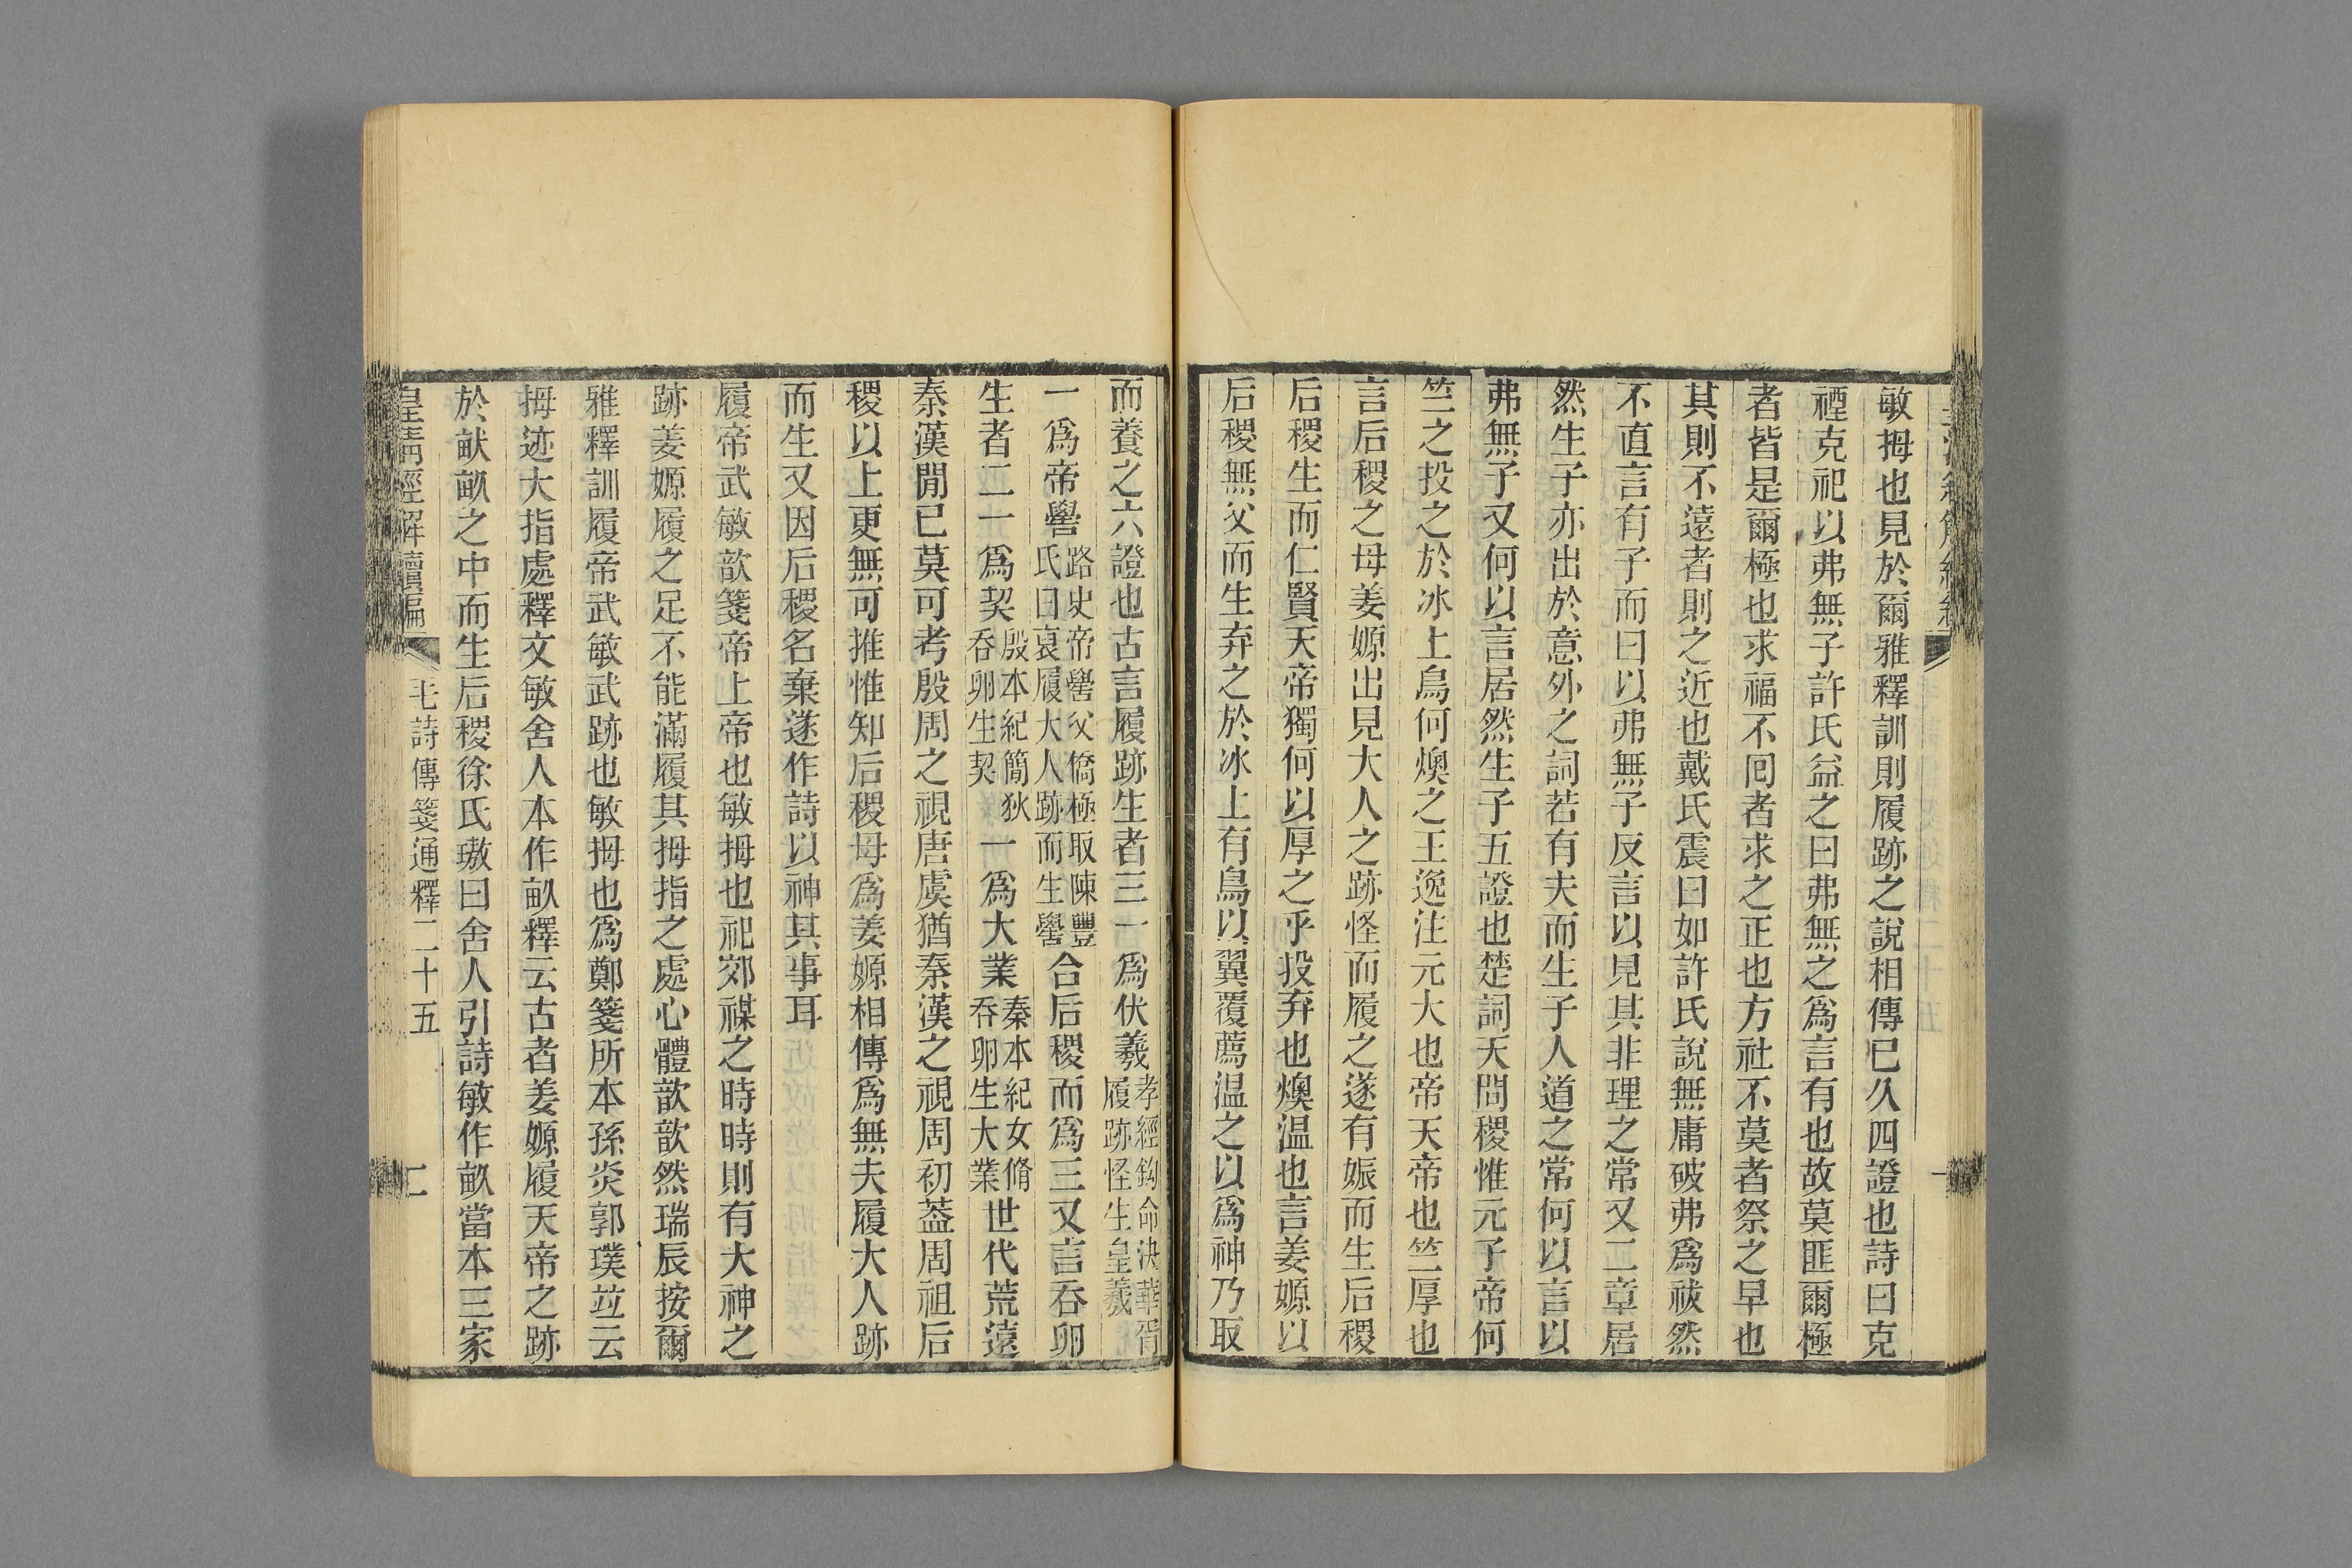 敏拇也見於爾雅釋訓則履跡之說相傳已久四證也詩曰克
禋克祀以弗無子許氏益之曰弗無之爲言有也故莫匪爾極
者皆是爾極也求福不囘者求之正也方社不莫者祭之早也
其則不遠者則之近也戴氏震曰如許氏說無庸破弗爲祓然
不直言有子而曰以弗無子反言以見其非理之常又二章居
然生子亦出於意外之詞若有夫而生子人道之常何以言以
弗無子又何以言居然生子五證也楚詞天問稷惟元子帝何
竺之投之於冰上鳥何燠之王逸注元大也帝天帝也竺厚也
言后稷之母姜嫄出見大人之跡怪而履之遂有娠而生后稷
后稷生而仁賢天帝獨何以厚之乎投弃也燠温也言姜嫄以
后稷無父而生弃之於冰上有鳥以翼覆薦温之以爲神乃取
而養之六證也古言履跡生者三一爲伏羲孝經鉤命決華胥履跡怪生皇羲
一爲帝嚳路史帝嚳父僑極取陳豐氏曰裒履大人跡而生嚳合后稷而爲三又言吞卵
生者二一爲契殷本紀簡狄吞卵生契一爲大業秦本紀女脩吞卵生大業世代荒遠
秦漢閒已莫可考殷周之視唐虞猶秦漢之視周初葢周祖后
稷以上更無可推惟知后稷母爲姜嫄相傳爲無夫履大人跡
而生又因后稷名棄遂作詩以神其事耳
履帝武敏歆箋帝上帝也敏拇也祀郊禖之時時則有大神之
跡姜嫄履之足不能滿履其拇指之處心體歆歆然瑞辰按爾
雅釋訓履帝武敏武跡也敏拇也爲鄭箋所本孫炎郭璞竝云
拇迹大指處釋文敏舍人本作畝釋云古者姜嫄履天帝之跡
於畎畝之中而生后稷徐氏璈曰舍人引詩敏作畝當本三家
皇淸經解續編
毛詩傳箋通釋二十五
二